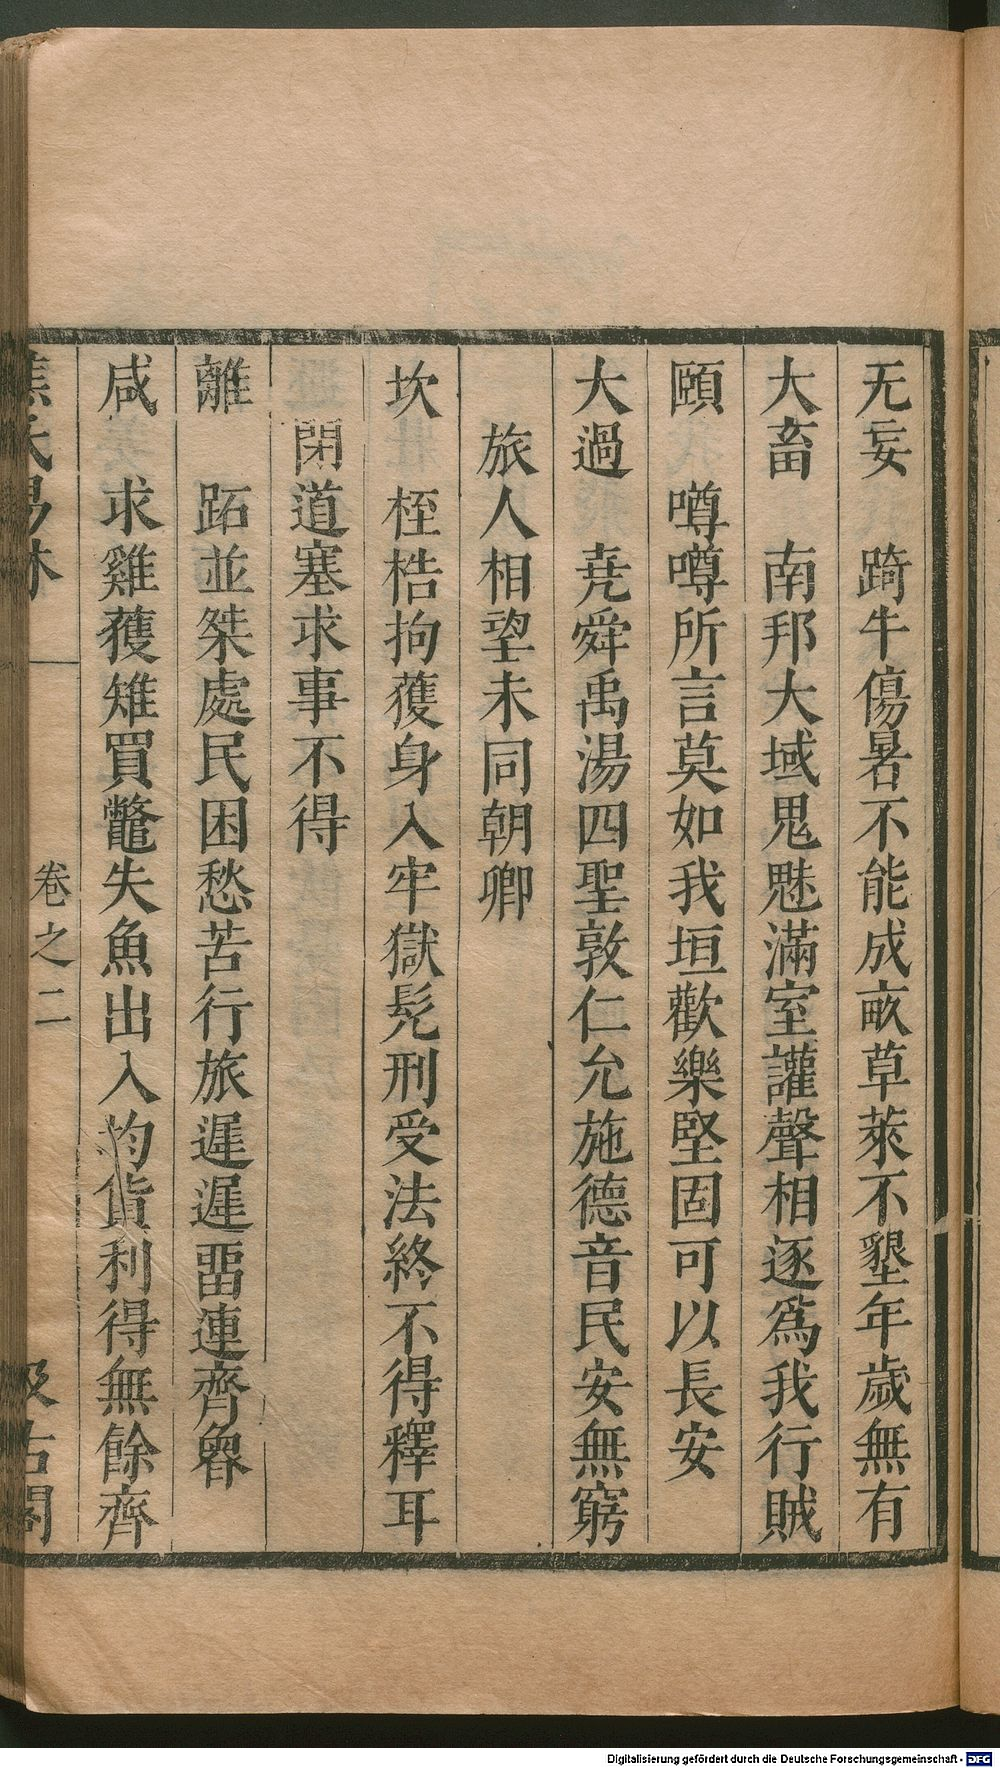 无妄 踦牛傷暑不能成畝草萊不墾年歲無有
大畜 南邦大域鬼魅滿室讙聲相逐爲我行賊
頤 噂噂所言莫如我垣歡樂堅固可以長安
大過 堯舜禹湯四聖敦仁允施德音民安無窮
旅人相望未同朝卿
坎 桎梏拘獲身入牢獄髡刑受法終不得釋耳
閉道塞求事不得
離 跖並桀處民困愁苦行旅遲遲畱連齊魯
咸 求雞獲雉買鼈失魚出入均貨利得無餘齊
焦氏易林 卷之二 汲古閣
Digitalisierung gefördert durch die Deutsche Forschungsgemeinschaft - DFG